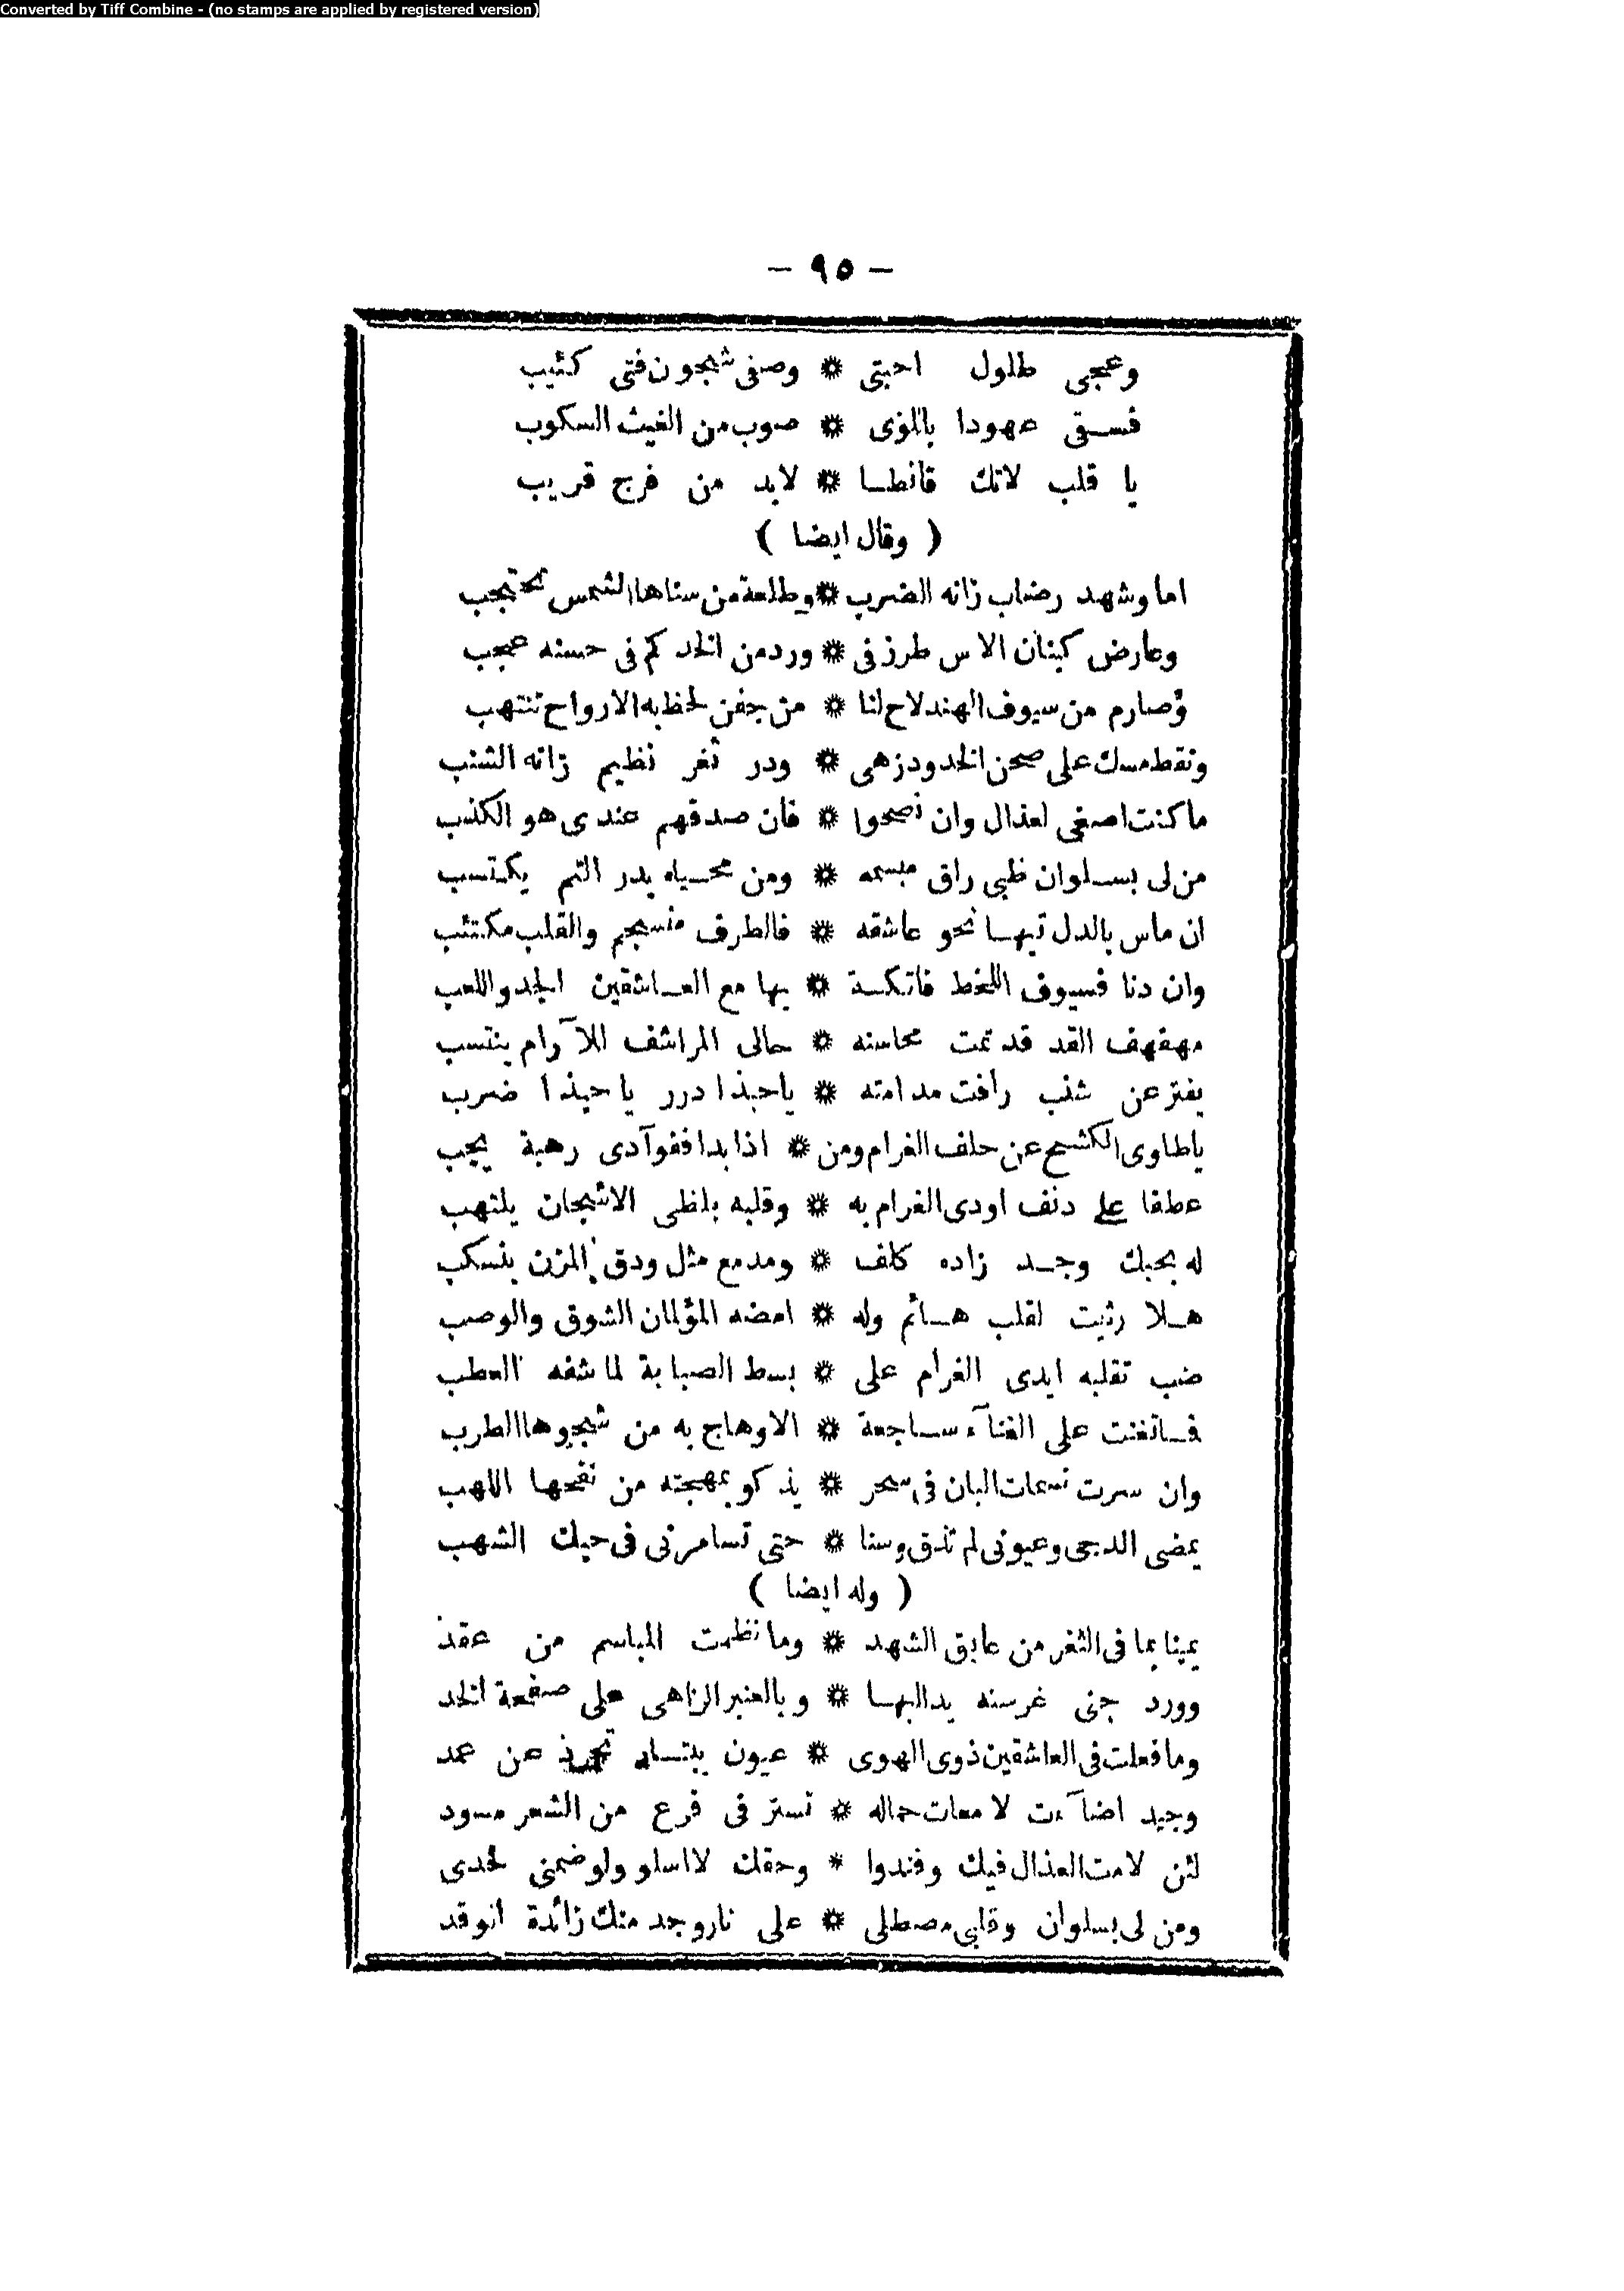 Converted by Tiff Combine - (no stamps are applied by registered version)
– ٩٥ –
وعجى طلول احبتى * وصفى شجون فتى كئيب
فسقى عهودا باللوى * صوب من الغيث السكوب
يا قلب لاتك قانطا * لابد من فرج قريب
( وقال ايضا )
اما وشهد رضاب زانه الضرب * وطلعة من سناها الشمس تحتجب
وعارض كبنان الاس طرز فى * ورد من الخد كم فى حسنه عجب
وصارم من سيوف الهند لاح لنا * من جفن لحظ به الارواح تنتهب
ونقط مسك على صحن الخدود زهى * ودر ثغر نظيم زانه الشنب
ما كنت اصغى لعذال وان نصحوا * فان صدقهم عندى هو الكذب
من لى بسلوان ظبى راق مبسمه * ومن محياه بدر التم يكتسب
ان ماس بالدل تيها نحو عاشقه * فالطرف منسجم والقلب مكتئب
وان دنا فسيوف اللحظ فاتكة * بها مع العاشقين الجد واللعب
مهفهف القد قد تمت محاسنه * حالى المراشف للآرام ينتسب
يفتر عن شنب رافت مدامته * ياحبذا درر ياحبذا ضرب
ياطاوى الكشح عن حلف الغرام ومن * اذا بدا ففوآدى رهبة يجب
عطفا على دنف اودى الغرام به * وقلبه بلظى الاشجان يلتهب
له بحبك وجد زاده كلف * ومدمع مثل ودق المزن ينسكب
هلا رثيت لقلب هائم وله * امضه المؤلمان الشوق والوصب
ضب تقلبه ايدى الغرام على * بسط الصبابة لما شفه العطب
فماتغنت على الغنآء ساجعة * الاوهاج به من شجوها الطرب
وان سرت نسمات البان فى سحر * يذكو بمهجته من نفحها اللهب
يمضى الدجى وعيونى لم تذق وسنا * حتى تسامرنى فى حبك الشهب
( وله ايضا )
يمينا بما فى الثغر من عابق الشهد * وما نظمت المباسم من عقد
وورد جنى غرسنه يد البها * وبالعنبر الزاهى على صفحة الخد
وما فعلت فى العاشقين ذوى الهوى * عيون تجرد عن عمد
وجيد اضآءت لامعات جماله * تستر فى فرع من الشعر مسود
لئن لامت العذال فيك وفندوا * وحقك لا اسلو ولو ضمنى لحدى
ومن لى بسلوان وقلبى مصطلى * على نار وجد منك زائدة الوقد